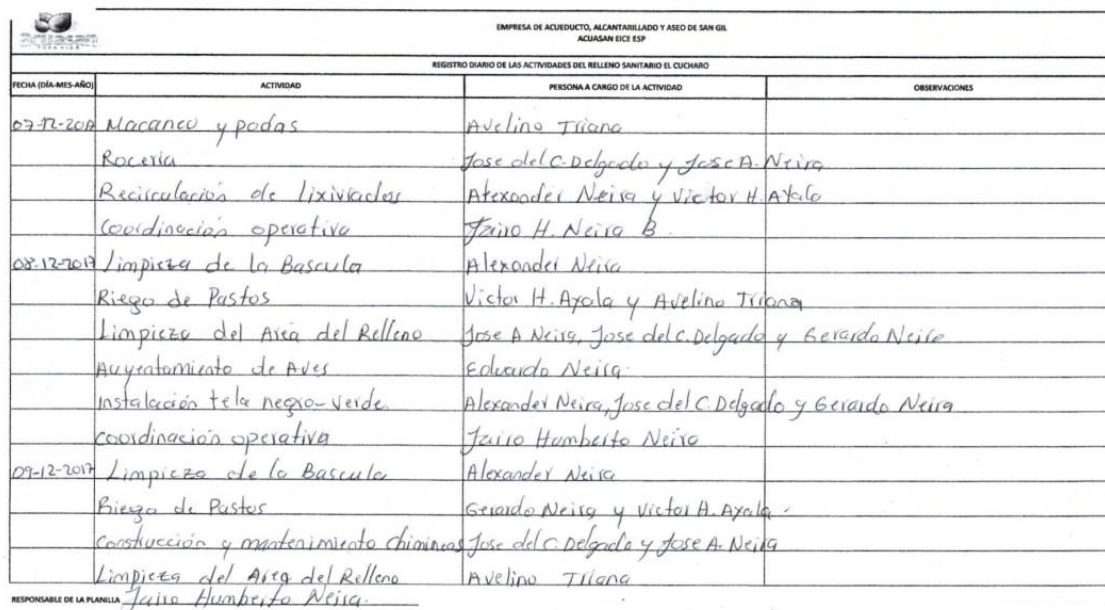 acuasan
EMPRESA DE ACUEDUCTO, ALCANTARILLADO Y ASEO DE SAN GIL
ACUASAN EICE ESP
REGISTRO DIARIO DE LAS ACTIVIDADES DEL RELLENO SANITARIO EL CUCHARO
FECHA (DÍA-MES-AÑO) ACTIVIDAD PERSONA A CARGO DE LA ACTIVIDAD OBSERVACIONES
07-12-2017 Macaneo y podas Avelino Triana
Rocería Jose del C. Delgado y Jose A. Neira
Recirculación de lixiviados Alexander Neira y Victor H. Ayala
Coordinación operativa Jairo H. Neira B.
08-12-2017 Limpieza de la Bascula Alexander Neira
Riego de Pastos Victor H. Ayala y Avelino Triana
Limpieza del Area del Relleno Jose A Neira, Jose del C. Delgado y Gerardo Neira
Auyentamiento de Aves Eduardo Neira.
instalación tela negro-verde. Alexander Neira, Jose del C. Delgado y Gerardo Neira
coordinación operativa Jairo Humberto Neira
09-12-2017 Limpieza de la Bascula Alexander Neira
Riego de Pastos Gerardo Neira y Victor H. Ayala.
Construcción y mantenimiento chimineas Jose del C. Delgado y Jose A. Neira
Limpieza del Area del Relleno Avelino Triana
RESPONSABLE DE LA PLANILLA Jairo Humberto Neira.